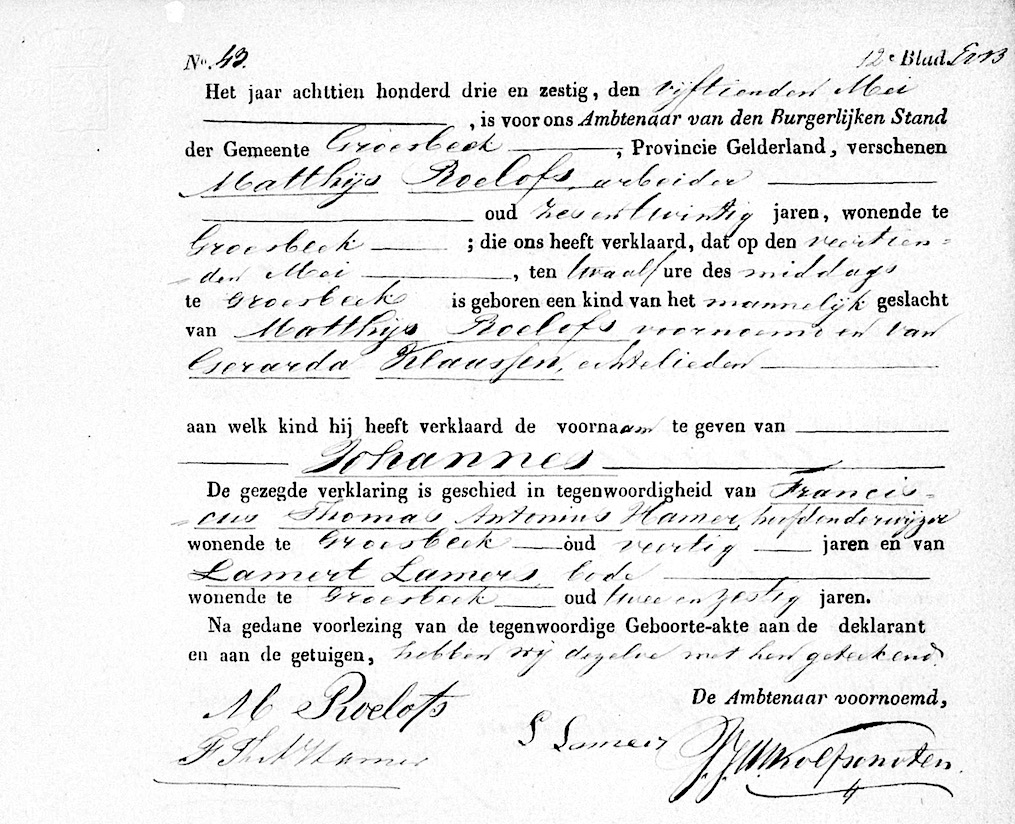 No. 43. 12e Blad.
Het jaar achttien honderd drie en zestig, den vijftienden Mei
, is voor ons Ambtenaar van den Burgerlijken Stand
der Gemeente Groesbeek , Provincie Gelderland, verschenen
Matthijs Roelofs, arbeider
oud zes en twintig jaren, wonende te
Groesbeek ; die ons heeft verklaard, dat op den veertien=
den Mei , ten twaalf ure des middags
te Groesbeek is geboren een kind van het mannelijk geslacht
van Matthijs Roelofs voornoemd en van
Gerarda Klaassen, echtelieden
aan welk kind hij heeft verklaard de voornaam te geven van
Johannes
De gezegde verklaring is geschied in tegenwoordigheid van Francis=
cus Thomas Antonius Hamer, hoofdonderwijzer
wonende te Groesbeek oud veertig jaren en van
Lamert Lamers, bode
wonende te Groesbeek oud twee en zestig jaren.
Na gedane voorlezing van de tegenwoordige Geboorte-akte aan de deklarant
en aan de getuigen, hebben wij dezelve met hen geteekend.
De Ambtenaar voornoemd,
M Roelofs
L Lamers
F Th A Hamer